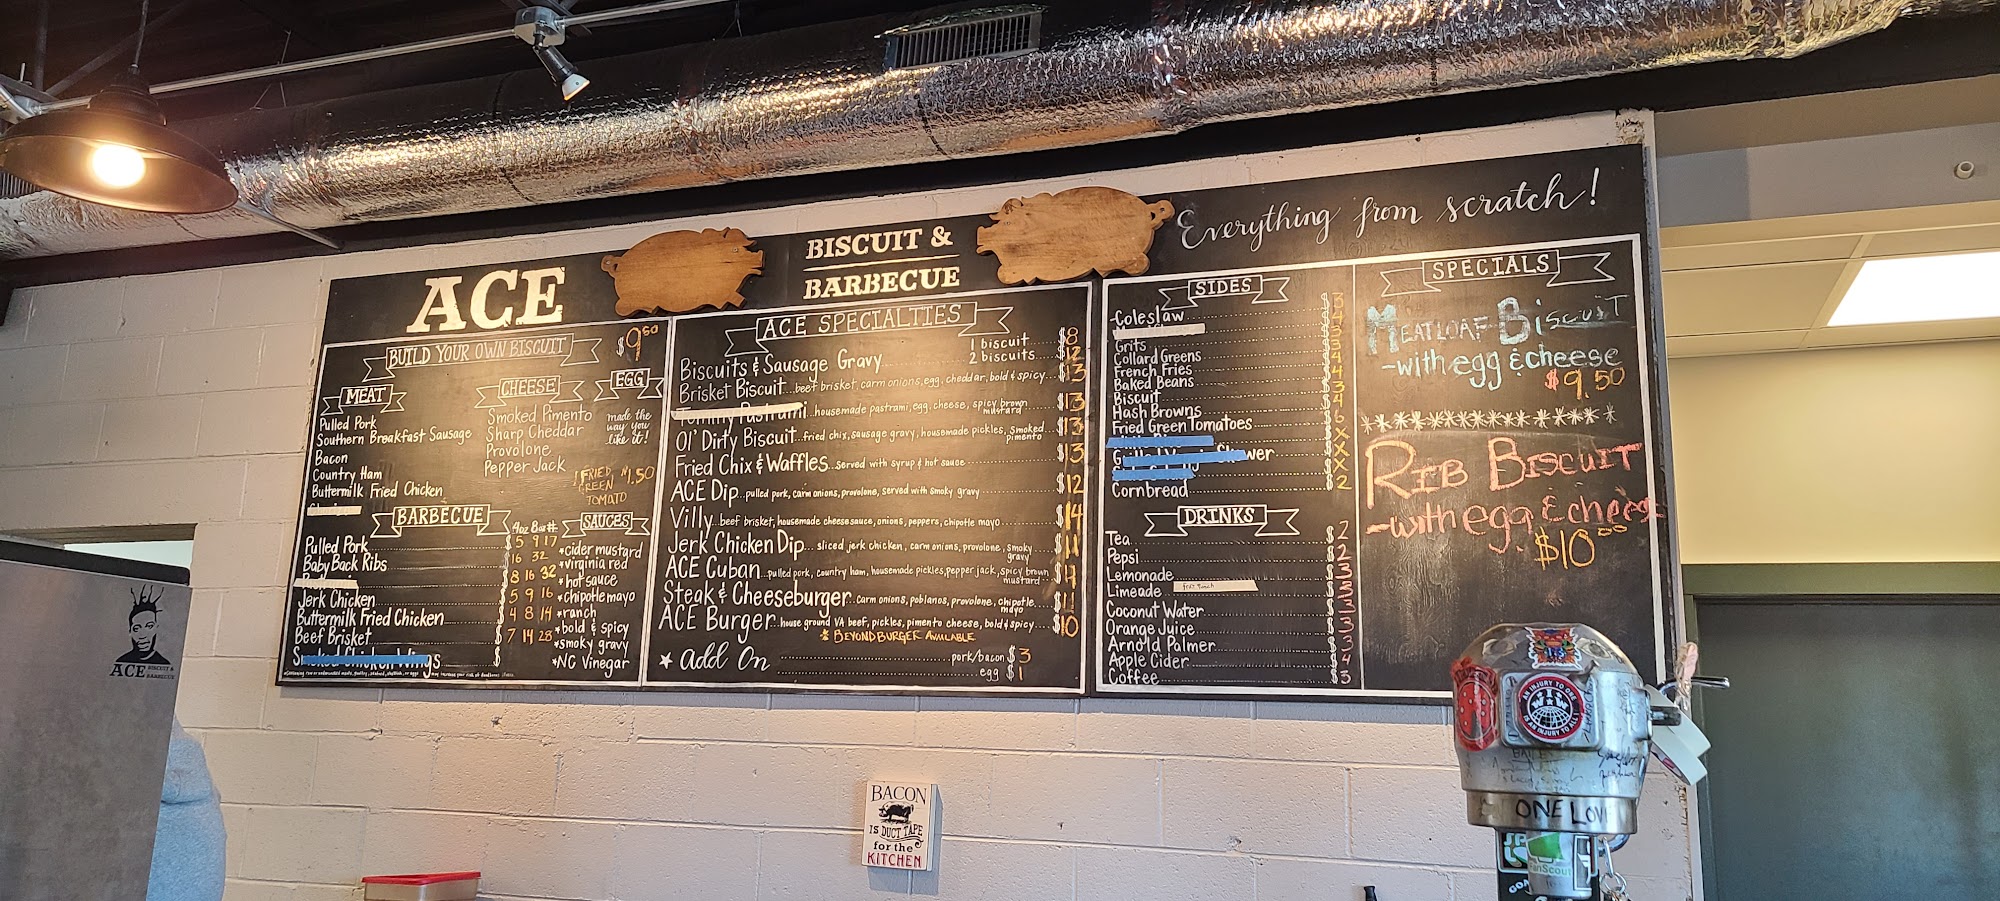 ACE
BISCUIT &
BARBECUE
Everything from scratch!
BUILD YOUR OWN BISCUIT $9.50
MEAT
Pulled Pork
Southern Breakfast Sausage
Bacon
Country Ham
Buttermilk Fried Chicken
CHEESE
Smoked Pimento
Sharp Cheddar
Provolone
Pepper Jack
EGG
made the
way you
like it!
FRIED $1.50
GREEN
TOMATO
BARBECUE
4oz 8oz #
Pulled Pork $5 9 17
Baby Back Ribs 16 32
8 16 32
Jerk Chicken 5 9 16
Buttermilk Fried Chicken 4 8 14
Beef Brisket 7 14 28
Smoked Chicken Wings $
SAUCES
*cider mustard
*virginia red
*hot sauce
*chipotle mayo
*ranch
*bold & spicy
*smoky gravy
*NC Vinegar
ACE SPECIALTIES
Biscuits & Sausage Gravy 1 biscuit $8
2 biscuits $12
Brisket Biscuit...beef brisket, carm onions, egg, cheddar, bold & spicy...$13
Tommy Pastrami..housemade pastrami, egg, cheese, spicy brown mustard $13
Ol' Dirty Biscuit..fried chix, sausage gravy, housemade pickles, smoked pimento $13
Fried Chix & Waffles..served with syrup & hot sauce $13
ACE Dip...pulled pork, carm onions, provolone, served with smoky gravy $12
Villy..beef brisket, housemade cheese sauce, onions, peppers, chipotle mayo $14
Jerk Chicken Dip... sliced jerk chicken, carm onions, provolone, smoky gravy $11
ACE Cuban...pulled pork, country ham, housemade pickles, pepper jack, spicy brown mustard
Steak & Cheeseburger..carm onions, poblanos, provolone, chipotle mayo $11
ACE Burger..house ground VA beef, pickles, pimento cheese, bold & spicy $10
* BEYOND BURGER AVAILABLE
★ Add On pork/bacon $3
egg $1
SIDES
Coleslaw
Grits
Collard Greens
French Fries
Baked Beans
Biscuit
Hash Browns
Fried Green Tomatoes
Cornbread 2
DRINKS
Tea $2
Pepsi $2
Lemonade $3
Limeade $3
Coconut Water $3
Orange Juice $3
Arnold Palmer $3
Apple Cider $4
Coffee $3
SPECIALS
MEATLOAF BiscuiT
-with egg & cheese
$9.50
RIB BISCUIT
-with egg & cheese
$10.00
ACE BISCUIT &
BARBECUE
BACON
IS DUCT TAPE
for the
KITCHEN
AN INJURY TO ONE
IS AN INJURY TO ALL
IWW
ONE LOVE